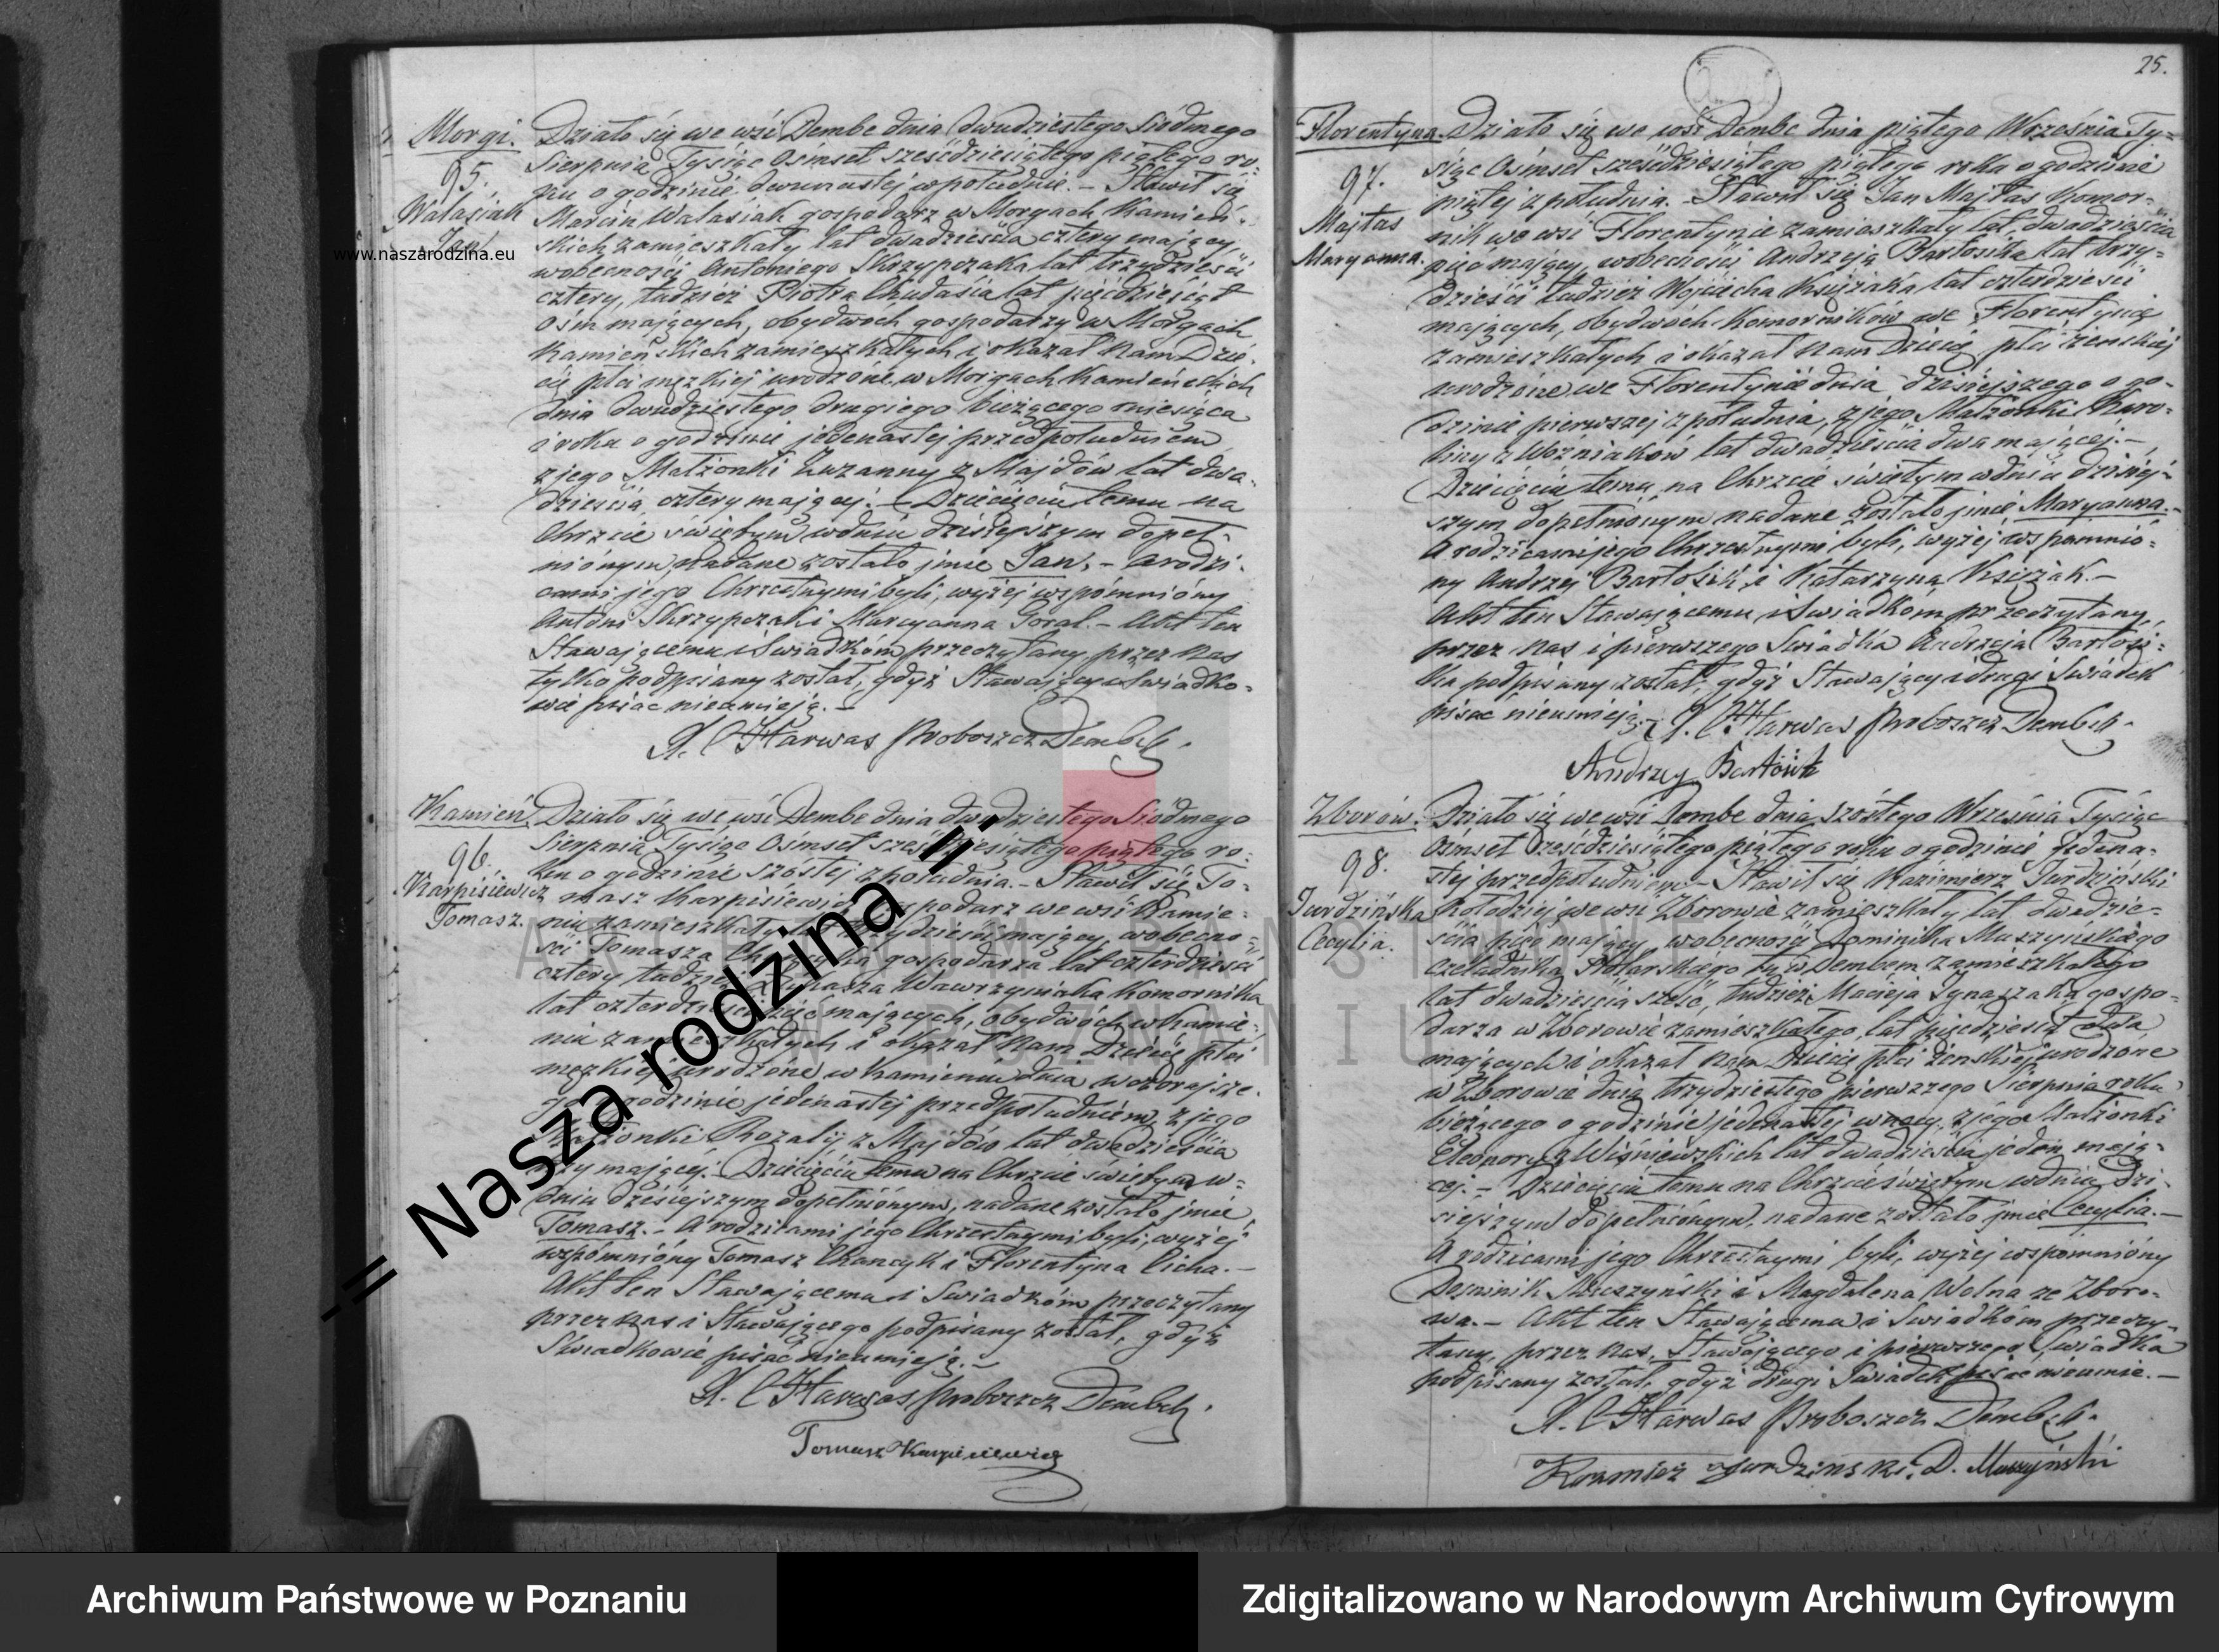 Morgi.
95.
Walasiak
Jan
Działo się we wsi Dembe dnia dwudziestego siódmego
Sierpnia Tysiąc Osimset sześćdziesiątego piątego ro-
ku o godzinie dwunastej w południe. – Stawił się
Marcin Walasiak gospodarz w Morgach Kamień-
skich zamieszkały lat dwadzieścia cztery mający,
w obecności Antoniego Skrzypczaka lat trzydzieści
cztery, tudzież Piotra Chudasia lat pięćdziesiąt
ośm mających, obydwoch gospodarzy w Morgach
Kamieńskich zamieszkałych i okazał nam Dzie-
cie płci męzkiej urodzone w Morgach Kamieńskich
dnia dwudziestego drugiego bieżącego miesiąca
i roku o godzinie jedenastej przed południem
z jego Małżonki Zuzanny z Majdów lat dwa-
dzieścia cztery mającej. – Dziecięciu temu na
Chrzcie świętym w dniu dzisiejszym dopeł-
nionym, nadane zostało jmie Jan, – a rodzi-
cami jego Chrzestnymi byli, wyżej wspomniony
Antoni Skrzypczak i Maryanna Goral. – Akt ten
Stawającemu i Swiadkom przeczytany przez nas
tylko podpisany został, gdyż Stawający i Swiadko-
wie pisac nieumieją. –
X. C Harwas Proboszcz Dembsk.
Kamień.
96.
Karpisiewicz
Tomasz.
Działo się we wsi Dembe dnia dwudziestego Siódmego
Sierpnia Tysiąc Osimset sześćdziesiątego piątego ro-
ku o godzinie szóstej z południa. – Stawił się To-
masz Karpisiewicz gospodarz we wsi Kamie-
niu zamieszkały lat trzydzieści mający, w obecno-
ści Tomasza gospodarza lat czterdzieści
cztery tudzież Łukasza Wawrzyniaka Komornika
lat czterdzieści pięć mających, obydwóch w Kamie-
niu zamieszkałych i okazał nam Dziecie płci
męzkiej urodzone w Kamieniu dnia wczorajsze-
go o godzinie jedenastej przed południem, z jego
Małżonki Rozalij z Majdów lat dwadzieścia
trzy mającej. Dziecięciu temu na Chrzcie świętym w-
dniu dzisiejszym dopełnionym, nadane zostało jmie
Tomasz. – A rodzicami jego Chrzestnymi byli, wyżej
wspomniony Tomasz i Florentyna Cicha. –
Akt ten Stawającemu i Swiadkom przeczytany
przez nas i Stawającego podpisany został, gdyż
Swiadkowie pisać nieumieją. –
X. C Harwas Proboszcz Dembsk.
Tomasz Karpisiewicz
25.
Florentyna.
97.
Majtas
Maryanna.
Działo się we wsi Dembe dnia piątego Września Ty-
siąc Osimset sześćdziesiątego piątego roku o godzinie
piątej z południa. – Stawił się Jan Majtas Komor-
nik we wsi Florentynie zamieszkały lat dwadzieścia
pięć mający, w obecności Andrzeja Bartosika lat trzy-
dzieści tudzież Wojciecha Księżaka lat czterdzieści
mających, obydwoch Komorników we Florentynie
zamieszkałych i okazał nam Dziecię płci żenskiej
urodzone we Florentynie dnia dzisiejszego o go-
dzinie pierwszej z południa, z jego Małżonki Karo-
liny z Woźniaków lat dwadzieścia dwa mającej. –
Dziecięciu temu na Chrzcie świętym w dniu dzisiej-
szym dopełnionym nadane zostało jmie Maryanna. –
A rodzicami jego Chrzestnymi byli, wyżej wspomnio-
ny Andrzej Bartosik i Katarzyna Księżak. –
Akt ten Stawającemu i Swiadkom przeczytany,
przez nas i pierwszego Swiadka Andrzeja Bartosi-
ka podpisany został, gdyż Stawający i drugi Swiadek
pisac nieumieją. – X. C Harwas Proboszcz Dembsk.
Andrzey Bartosik
Zborów.
98.
Jurdzińska
Cecylia.
Działo się we wsi Dembe dnia szóstego Września Tysiąc
Osimset sześćdziesiątego piątego roku o godzinie jedena-
stej przed południem. – Stawił się Kazimierz Jurdziński
Kołodziej we wsi Zborowie zamieszkały lat dwadzie-
ścia pięć mający, w obecności Dominika Muszyńskiego
czeladnika Stolarskiego tu w Dembem zamieszkałego
lat dwadzieścia sześć, tudzież Macieja Ignaszaka gospo-
darza w Zborowie zamieszkałego, lat pięćdziesiąt dwa
mających i okazał nam Dziecię płci żenskiej urodzone
w Zborowie dnia trzydziestego pierwszego Sierpnia roku
bieżącego o godzinie jedenastej w nocy, z jego Małżonki
Eleonory z Wiśniewskich lat dwadzieścia jeden mają-
cej. – Dziecięciu temu na Chrzcie świętym w dniu dzi-
siejszym dopełnionym, nadane zostało jmie Cecylia. –
A rodzicami jego Chrzestnymi byli, wyżej wspomniony
Dominik Muszyński i Magdalena Wolna ze Zboro-
wa. – Akt ten Stawającemu i Swiadkom przeczy-
tany, przez nas, Stawającego i pierwszego Swiadka
podpisany został, gdyż drugi Swiadek pisać nieumie. –
X. C Harwas Proboszcz Dembsk.
Kazmierz Jurdzinski. D. Muszyński
www.naszarodzina.eu
-= Nasza rodzina =-
Archiwum Państwowe w Poznaniu
Zdigitalizowano w Narodowym Archiwum Cyfrowym